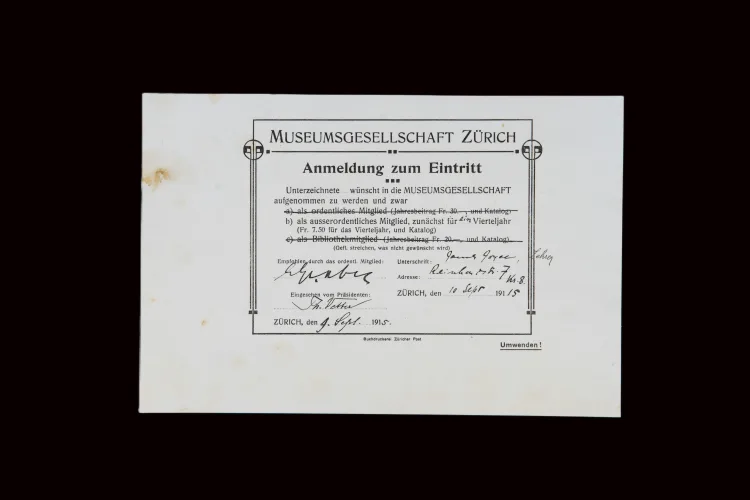 MUSEUMSGESELLSCHAFT ZÜRICH
Anmeldung zum Eintritt
Unterzeichnete wünscht in die MUSEUMSGESELLSCHAFT
aufgenommen zu werden und zwar
a) als ordentliches Mitglied (Jahresbeitrag Fr. 30.—, und Katalog)
b) als ausserordentliches Mitglied, zunächst für ein Vierteljahr
(Fr. 7.50 für das Vierteljahr, und Katalog)
c) als Bibliothekmitglied (Jahresbeitrag Fr. 20.—, und Katalog).
(Gefl. streichen, was nicht gewünscht wird)
Empfohlen durch das ordentl. Mitglied:
Unterschrift: James Joyce, Lehrer
Adresse: Reinhardstr. 7 Kr. 8.
Eingesehen vom Präsidenten:
Th. Vetter
ZÜRICH, den 10 Sept 1915
ZÜRICH, den 9. Sept. 1915.
Buchdruckerei Züricher Post
Umwenden!